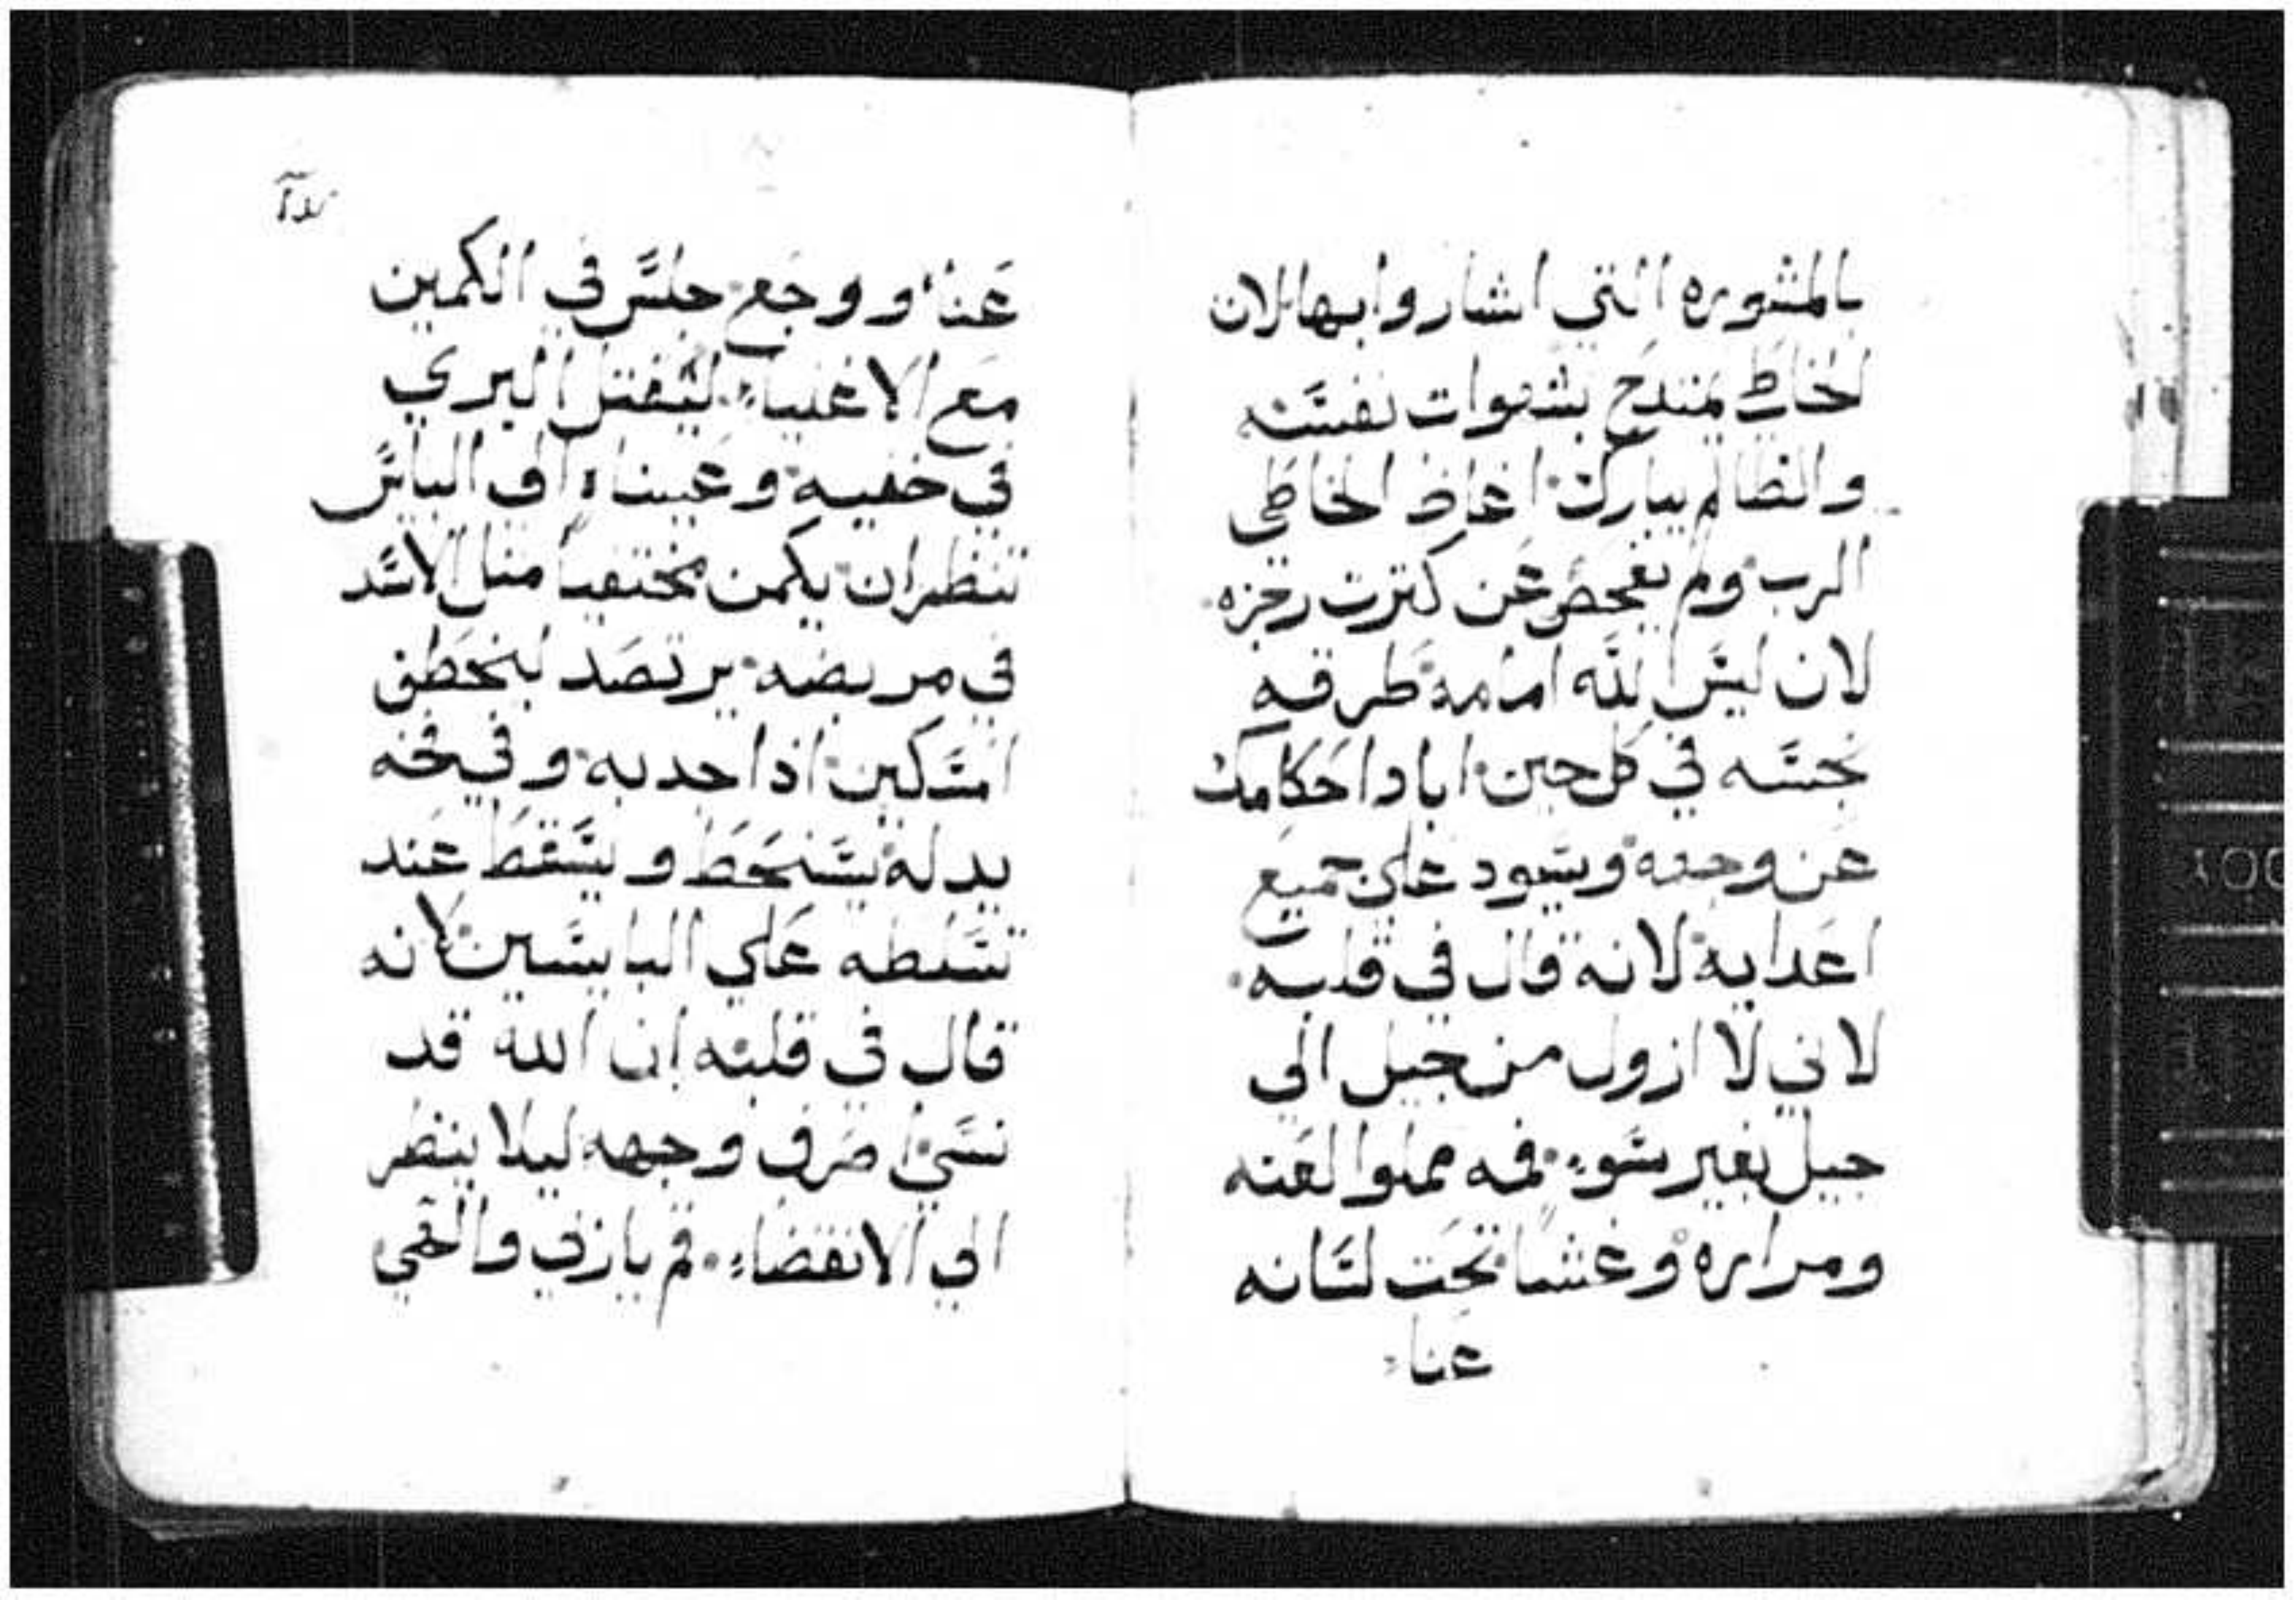 بالمشوره التي اشاروا بها لان
الخاطي يمتدح بشهوات نفسه
والظالم يبارك اغاظ الخاطي
الرب ولم يفحص عن كثرت رجزه
لان ليس الله امامه طرقه
نجسه في كل حين اباد احكامك
عن وجهه ويسود علي جميع
اعدايه لانه قال في قلبه
لاني لا ازول من جيل الي
جيل بغير سوء فمه مملوا لعنه
ومراره وغشا تحت لسانه
عناء
عناء ووجع جلس في الكمين
مع الاغنياء ليقتل البري
في خفيه وعيناه الي البايس
تنظران يكمن مختفيا مثل الاسد
في مربضه يرتصد ليخطف
المسكين اذا جذبه وفي فخه
يذله يسنحط ويسقط عند
تسلطه علي البايسين لانه
قال في قلبه ان الله قد
نسي اصرف وجهه ليلا ينظر
الي الانقضاء قم يا رب والهي